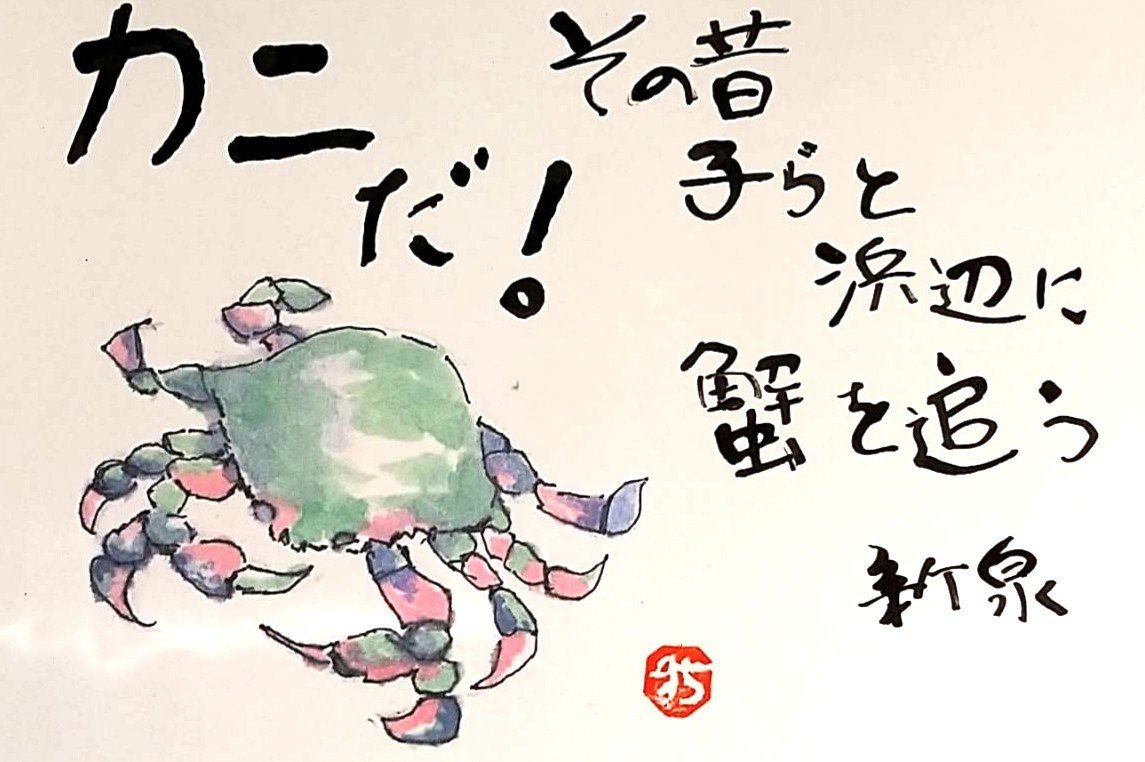 カニ
だ!
その昔
子らと
浜辺に
蟹を追う
新泉